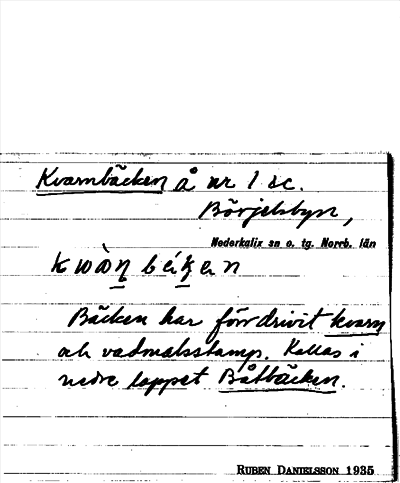 Kvarnbäcken å nr 1 sc.
Börjelsbyn,
Nederkalix sn o. tg. Norrb. län
Bäcken har förr drivit kvarn
och vadmalsstamp. Kallas i
nedre loppet Båtbäcken.
RUBEN DANIELSSON 1935